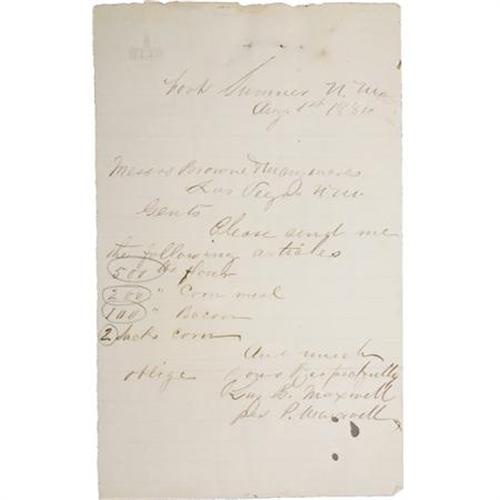 Fort Sumner N. M.
Aug 1st 1880
Messrs Browne & Manzanares
Las Vegas N M
Gents
Please send me
the following articles
500 lbs flour
200 " Corn meal
100 " Bacon
2 Sacks corn
And much
oblige yours Respectfully
Luz B. Maxwell
per P. Maxwell